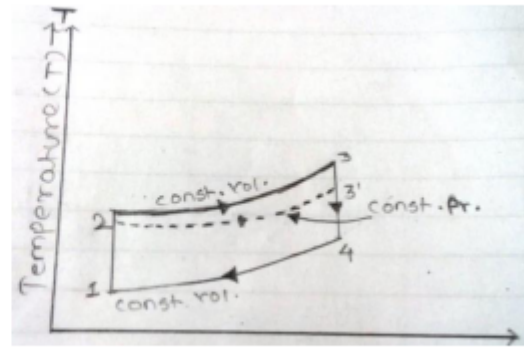 T
Temperature (T) →
const. vol.
3
3'
const. Pr.
2
4
1
const. vol.